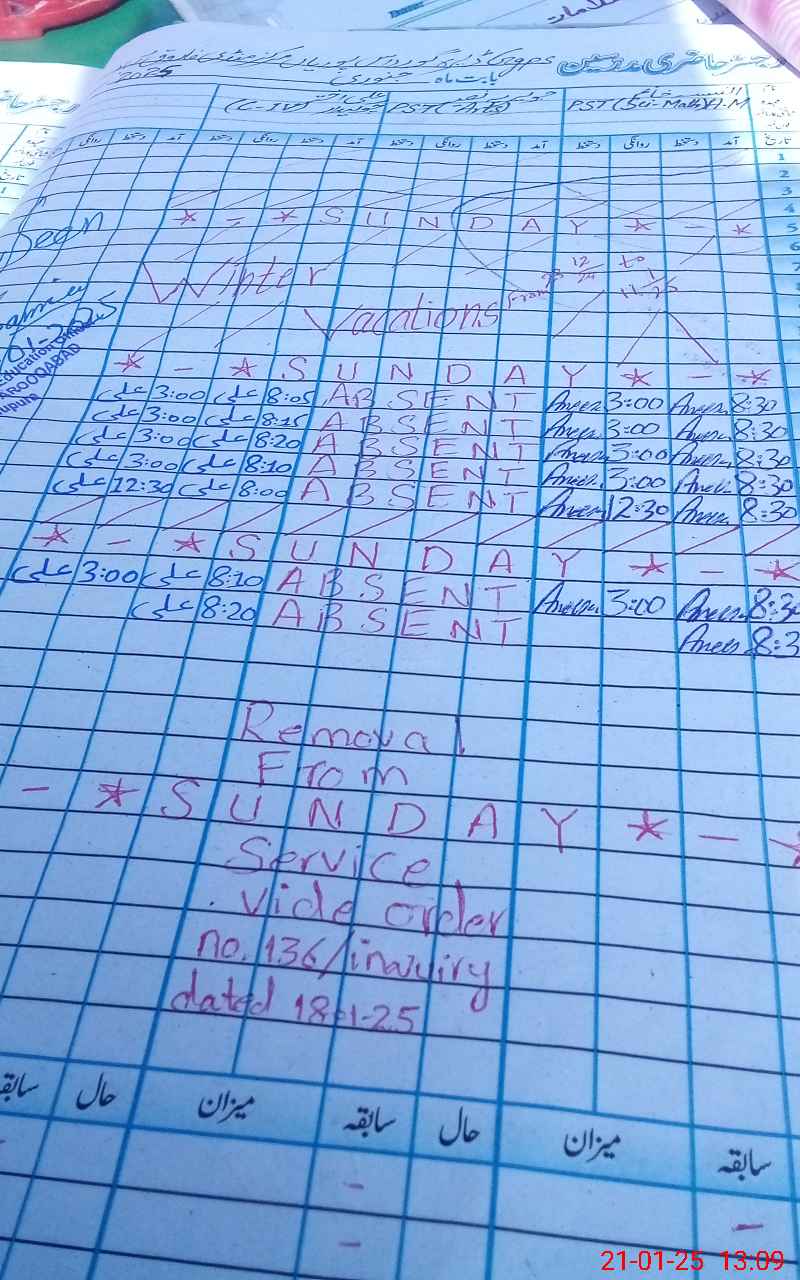 رجسٹر حاضری مدرسین
بابت ماہ جنوری 2025
PST (Sci-Math) H.M
PST (Arts)
(C-IV)
تاریخ آمد دستخط روانگی دستخط آمد دستخط روانگی دستخط آمد دستخط روانگی
1
2
3
4
5 * - * S U N D A Y * - *
6
7
Winter
Vacations From 12/24 to 1
11-25
* - * S U N D A Y * - *
علی 3:00 علی 8:05 A B S E N T Anees 3:00 Anees 8:30
علی 3:00 علی 8:15 A B S E N T Anees 3:00 Anees 8:30
علی 3:00 علی 8:20 A B S E N T Anees 3:00 Anees 8:30
علی 3:00 علی 8:10 A B S E N T Anees 3:00 Anees 8:30
علی 12:30 علی 8:00 A B S E N T Anees 12:30 Anees 8:30
* - * S U N D A Y * - *
علی 3:00 علی 8:10 A B S E N T Anees 3:00 Anees 8:3
علی 8:20 A B S E N T Anees 8:3
Removal
From
- * S U N D A Y * - *
Service
vide order
no. 136/inquiry
dated 18-1-25
سابقہ میزان حال سابقہ میزان حال سابقہ
21-01-25 13:09